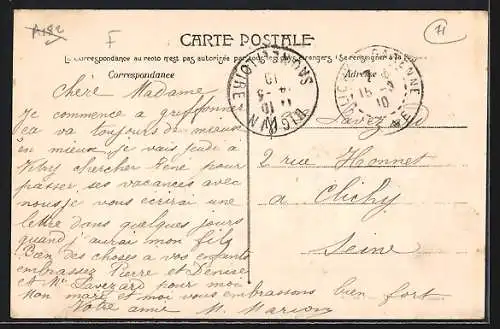 A182
F
71
CARTE POSTALE
La Correspondance au recto n'est pas autorisée par tous les pays étrangers (Se renseigner à la Poste)
Correspondance
Adresse
Chère Madame
Je commence a griffonner
ça va toujours de mieux
en mieux je vais jeudi a
chercher René pour
passer ses vacances avec
nous je vous ecrirai une
lettre dans quelques jours
quand j'aurai mon fils
Bien des choses a vos enfants
embrassez Pierre et Denise
et Mr Lavezard pour moi
Mon mari et moi vous embrassons bien fort
Votre amie M. Marion
2 rue Honnet
a Clichy
Seine
SAONE-ET-LOIRE
DIGOIN
GARENNE